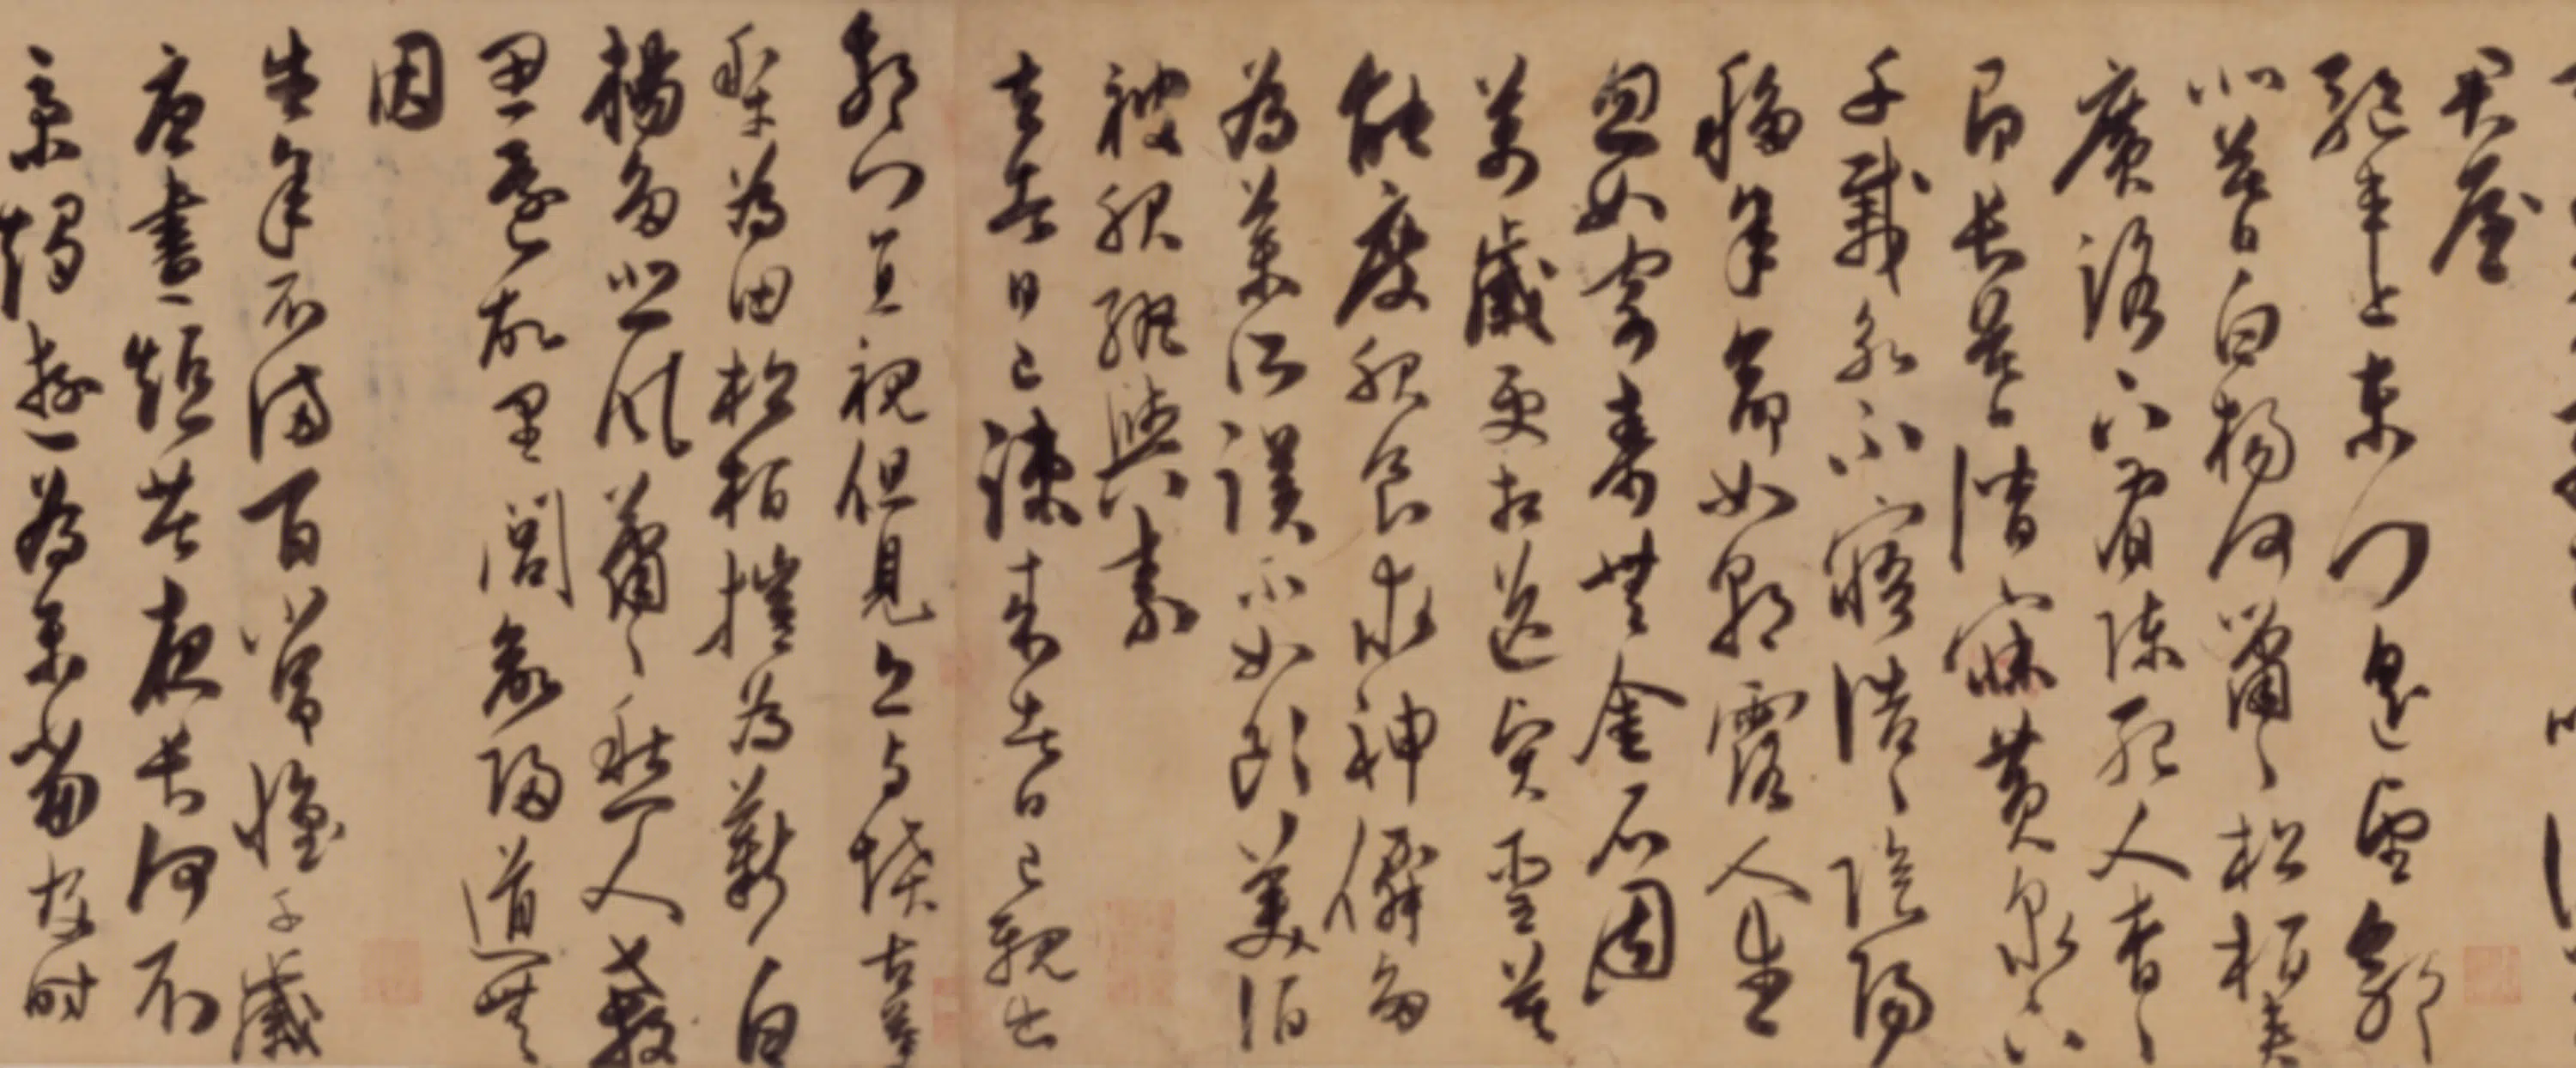 君屋
驅車上東門遥望郭
北墓白楊何蕭〻松柏夾
廣路下有陳死人杳〻
即長暮潛寐黄泉下
千載永不寤浩〻陰陽
移年命如朝露人生
忽如寄壽無金石固
萬歲更相送賢聖莫
能度服食求神僊多
為藥所誤不如飲美酒
被服紈與素
去者日已疎来者日已親出
郭門直視但見丘與墳古墓
犁為田松柏摧為薪白
楊多悲風蕭〻愁人殺
思還故里閭欲歸道無
因
生年不滿百常懷千歲
憂晝短苦夜長何不
秉燭遊為樂當及時